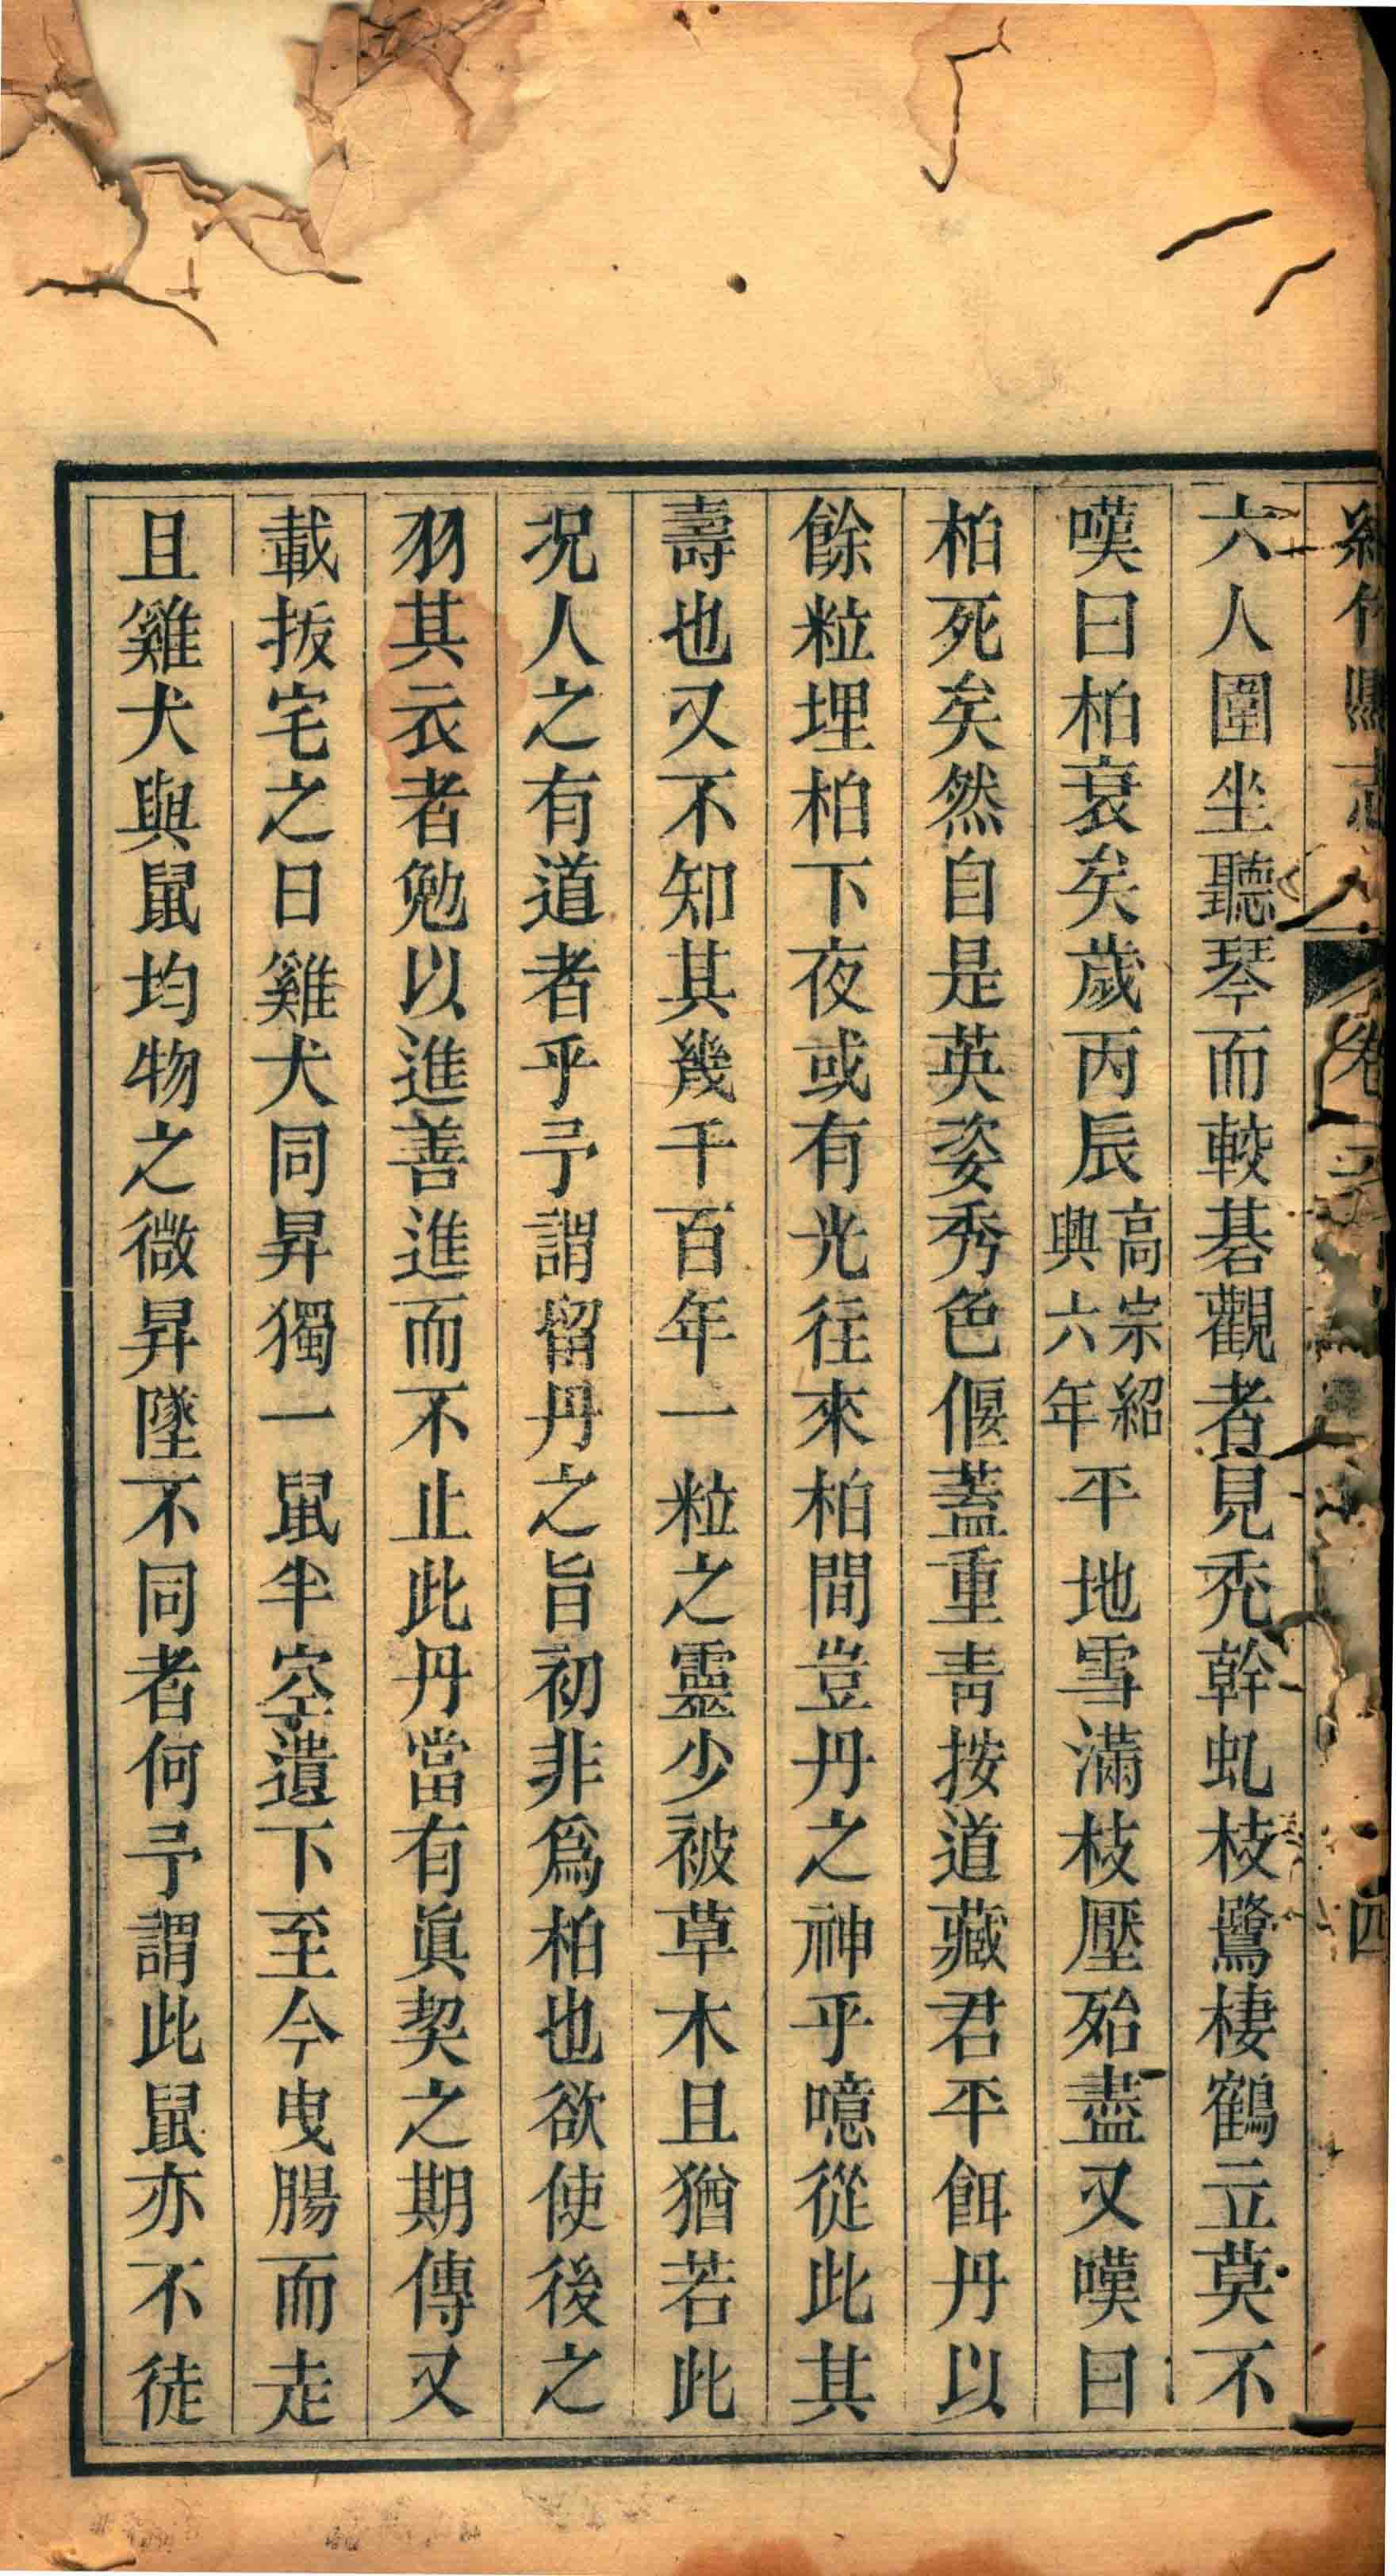 綿竹縣志 卷 四
六人圍坐聽琴而較碁觀者見禿幹虬枝鷺棲鶴立莫不
嘆曰柏衰矣歲丙辰高宗紹興六年平地雪滿枝壓殆盡又嘆曰
柏死矣然自是英姿秀色偃蓋重青按道藏君平餌丹以
餘粒埋柏下夜或有光往來柏間豈丹之神乎噫從此其
壽也又不知其幾千百年一粒之靈少被草木且猶若此
况人之有道者乎予謂留丹之旨初非爲柏也欲使後之
羽其衣者勉以進善進而不止此丹當有眞契之期傳又
載拔宅之日雞犬同昇獨一鼠半空遺下至今曳腸而走
且雞犬與鼠均物之微昇墜不同者何予謂此鼠亦不徒